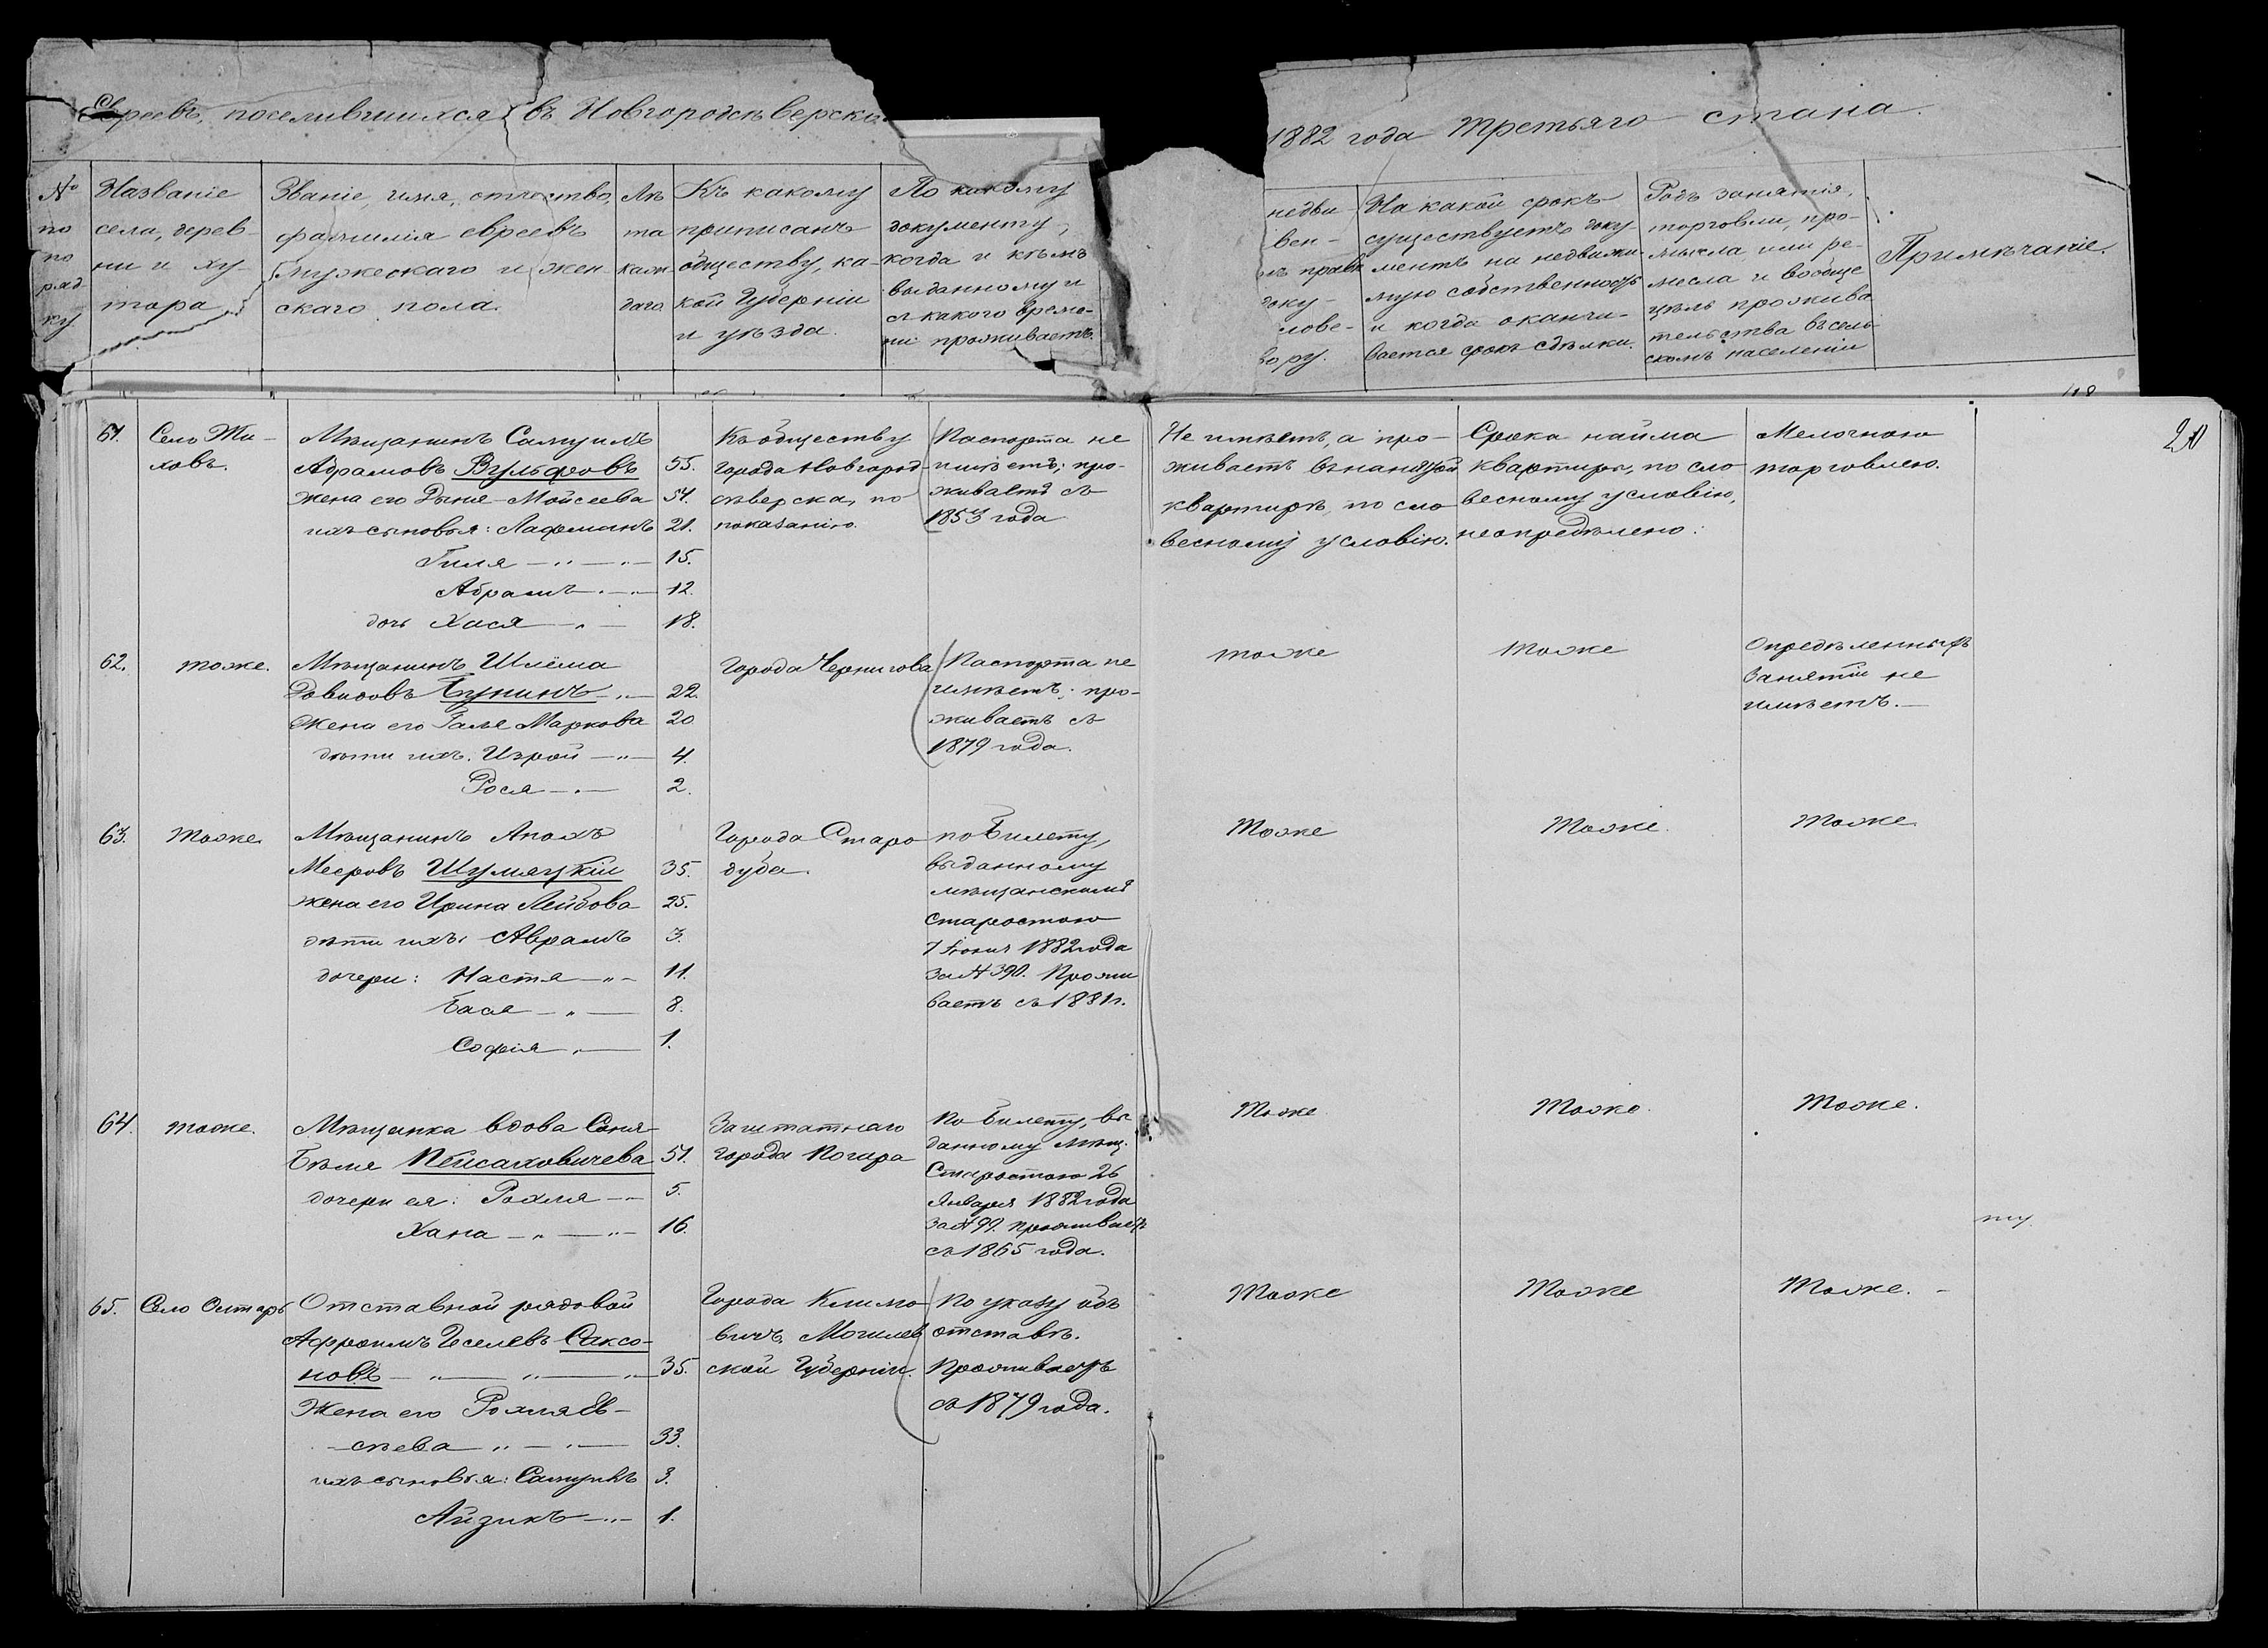 Евреевъ, поселившихся въ Новгородсѣверско
1882 года Третьяго стана.
№
по
по
ряд
ку.
Названіе
села, дерев-
ни и ху-
тора
Званіе, имя, отчество,
фамилія евреевъ
мужескаго и жен-
скаго пола.
Лѣ
та
кажд
даго.
Къ какому
приписанъ
обществу, ка-
кой Губерніи
и уѣзда.
По какому
документу,
когда и кѣмъ
выданному и
съ какого време-
ни проживаетъ.
недви-
вен-
доку-
лове-
вору.
На какой срокъ
существуетъ доку-
ментъ на недвижи-
мую собственность
и когда оканчи-
вается срокъ сдѣлки.
Родъ занятія,
торговли, про-
мысла или ре-
месла и вообще
цѣль прожива
тельства въ сель-
скомъ населеніи
Примѣчаніе.
20
61.
Село Жи-
ховъ.
Мѣщанинъ Самуилъ
Абрамовъ Вульфовъ 55.
жена его Дыня Мойсеева 54.
ихъ сыновья: Лафманъ 21.
Гиля —"—"— 15.
Абрамъ —"— 12.
дочь Хася —"— 18.
Къ обществу
города Новгород-
сѣверска, по
показанію.
Паспорта не
имѣетъ; про-
живаетъ съ
1853 года
Не имѣетъ, а про-
живаетъ въ нанятой
квартирѣ, по сло
весному условію.
Срока найма
квартиры, по сло
весному условію,
неопредѣлено:
Мелочною
торговлею.
62.
тоже.
Мѣщанинъ Шлёма
Давидовъ Бунинъ —"— 22.
Жена его Галя Маркова 20
дѣти ихъ. Изрой —"— 4.
Рося —"— 2.
Города Чернигова
Паспорта не
имѣетъ; про-
живаетъ съ
1879 года.
тоже
тоже
Опредѣленныхъ
Занятій не
имѣетъ.—
63.
Тоже.
Мѣщанинъ Анохъ
Мееровъ Шумяцкій 35.
жена его Ирина Лейбова 25.
дѣти ихъ: Аврамъ 3.
дочери: Настя —"— 11.
Бася —"— 8.
Софія —"— 1.
Города Старо
дуба.
по Билету,
выданному
мѣщанскимъ
Старостою
7 Іюня 1882 года
за № 390. Прожи
ваетъ съ 1881 г.
Тоже
Тоже.
Тоже.
64.
тоже.
Мѣщанка вдова Соня-
Бѣля Пейсаховичева 51.
дочери ея: Рохля —"— 5.
Хана —"—"— 16.
Заштатнаго
города Погара
По билету, вы
данному мѣщ.
Старостою 26
Января 1882 года
за № 99. проживаетъ
съ 1865 года.
Тоже
Тоже
Тоже.
65.
Село Олтарь
Отставной рядовой
Афроимъ Іеселевъ Саксо-
новъ —"—"—"— 35.
Жена его Рохля Ев-
сѣева —"—"— 33.
ихъ сыновья: Самуилъ 3.
Айзикъ —"— 1.
Города Климо
вичъ, Могилев
ской Губерніи.
По указу объ
отставкѣ.
Проживаетъ
съ 1879 года.
Тоже
Тоже
Тоже. -